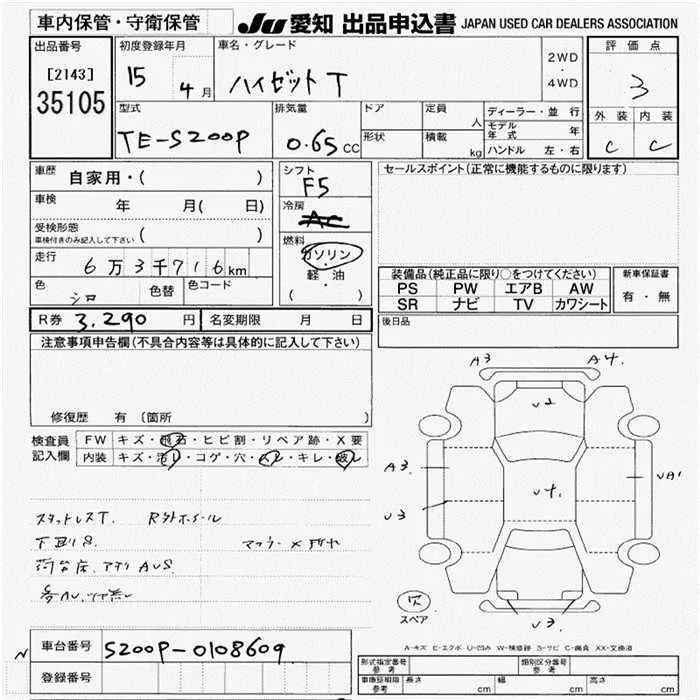 車内保管・守衛保管
JU 愛知 出品申込書 JAPAN USED CAR DEALERS ASSOCIATION
出品番号
[2143]
35105
初度登録年月
15 4月
車名・グレード
ハイゼットT
2WD
・
4WD
評価点
3
外装 内装
C C
型式
TE-S200P
排気量
0.65 CC
ドア
形状
定員
人
積載
kg
ディーラー・並行
モデル年式 年
ハンドル 左・右
車歴 自家用・( )
車検 年 月( 日)
受検形態
車検付きのみ記入して下さい ( )
走行 6万3千716km
色 シロ 色替 色コード
シフト
F5
冷房
AC
燃料
ガソリン
・
軽・油
( )
セールスポイント(正常に機能するものに限ります)
装備品(純正品に限り○をつけてください)
PS PW エアB AW
SR ナビ TV カワシート
新車保証書
有・無
R券 3,290 円 名変期限 月 日
後日品
注意事項申告欄(不具合内容等は具体的に記入して下さい)
修復歴 有 (箇所
検査員記入欄
FW キズ・飛石・ヒビ割・リペア跡・X要
内装 キズ・汚レ・コゲ・穴・スレ・キレ・破レ
スタットレスT. R外ホイール
荷台床、アオリ AUS
A3 A4.
U2
A3
U3
U4.
UA1
U3
スペア
A-キズ E-エクボ U-凹み W-補修跡 S-サビ C-腐食 XX-交換済
N
車台番号 S200P-0108609
登録番号
型式指定番号 参考 類別区分番号 参考
車庫証明用 参考 長さ cm 幅 cm 高さ cm